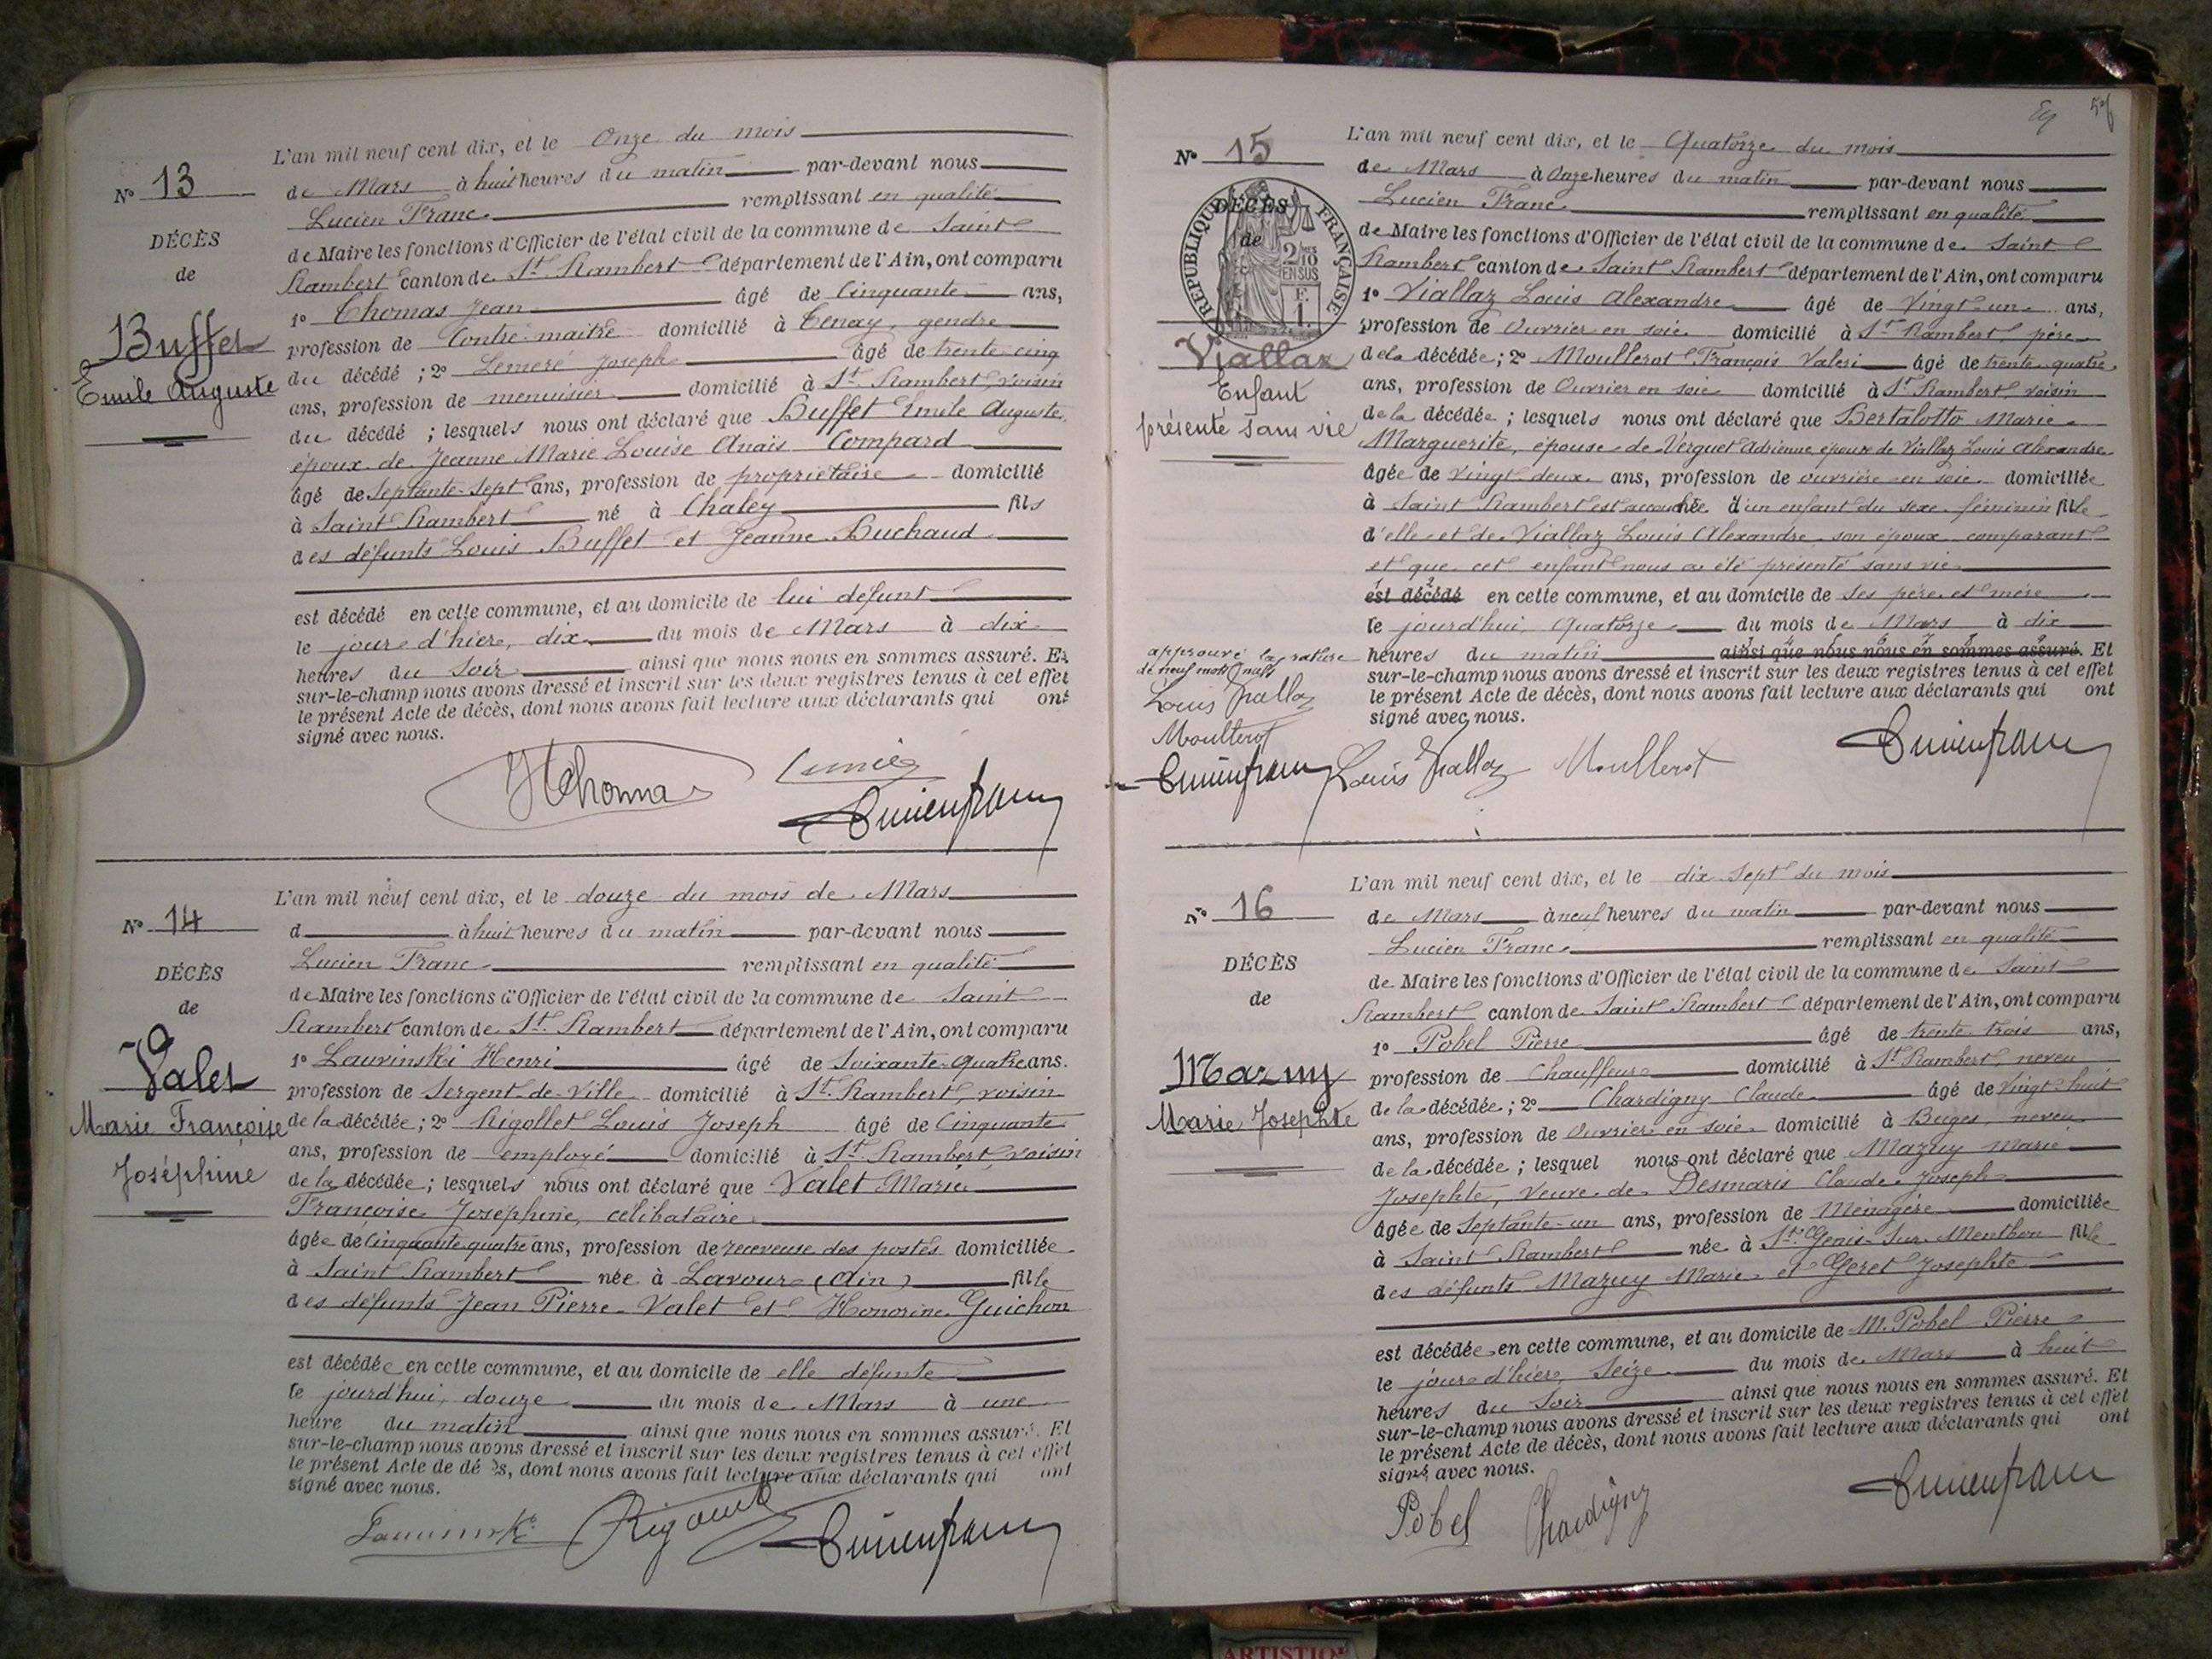 L'an mil neuf cent dix, et le Onze du mois
N° 13
de Mars à huit heures du matin par-devant nous
Lucien Franc remplissant en qualité
DÉCÈS
de Maire les fonctions d'Officier de l'état civil de la commune de Saint
de
Rambert canton de St Rambert département de l'Ain, ont comparu
1° Thomas Jean âgé de Cinquante ans,
Buffet
profession de Contre-maitre domicilié à Tenay, gendre
Emile Auguste
du décédé ; 2° Lemeré Joseph âgé de trente-cinq
ans, profession de menuisier domicilié à St Rambert, voisin
du décédé ; lesquels nous ont déclaré que Buffet Emile Auguste,
époux de Jeanne Marie Louise Anaïs Compard
âgé de Septante-sept ans, profession de propriétaire domicilié
à Saint Rambert né à Chaley fils
des défunts Louis Buffet et Jeanne Buchaud
est décédé en cette commune, et au domicile de lui défunt
le jour d'hier, dix du mois de Mars à dix
heures du soir ainsi que nous nous en sommes assuré. Et
sur-le-champ nous avons dressé et inscrit sur les deux registres tenus à cet effet
le présent Acte de décès, dont nous avons fait lecture aux déclarants qui ont
signé avec nous.
JThomas
Lucien franc
L'an mil neuf cent dix, et le douze du mois de Mars
N° 14
d à huit heures du matin par-devant nous
Lucien Franc remplissant en qualité
DÉCÈS
de Maire les fonctions d'Officier de l'état civil de la commune de Saint
de
Rambert canton de St Rambert département de l'Ain, ont comparu
1° Lauvinski Henri âgé de Soixante-quatre ans.
Valet
profession de Sergent-de-ville domicilié à St Rambert, voisin
Marie Françoise
de la décédée ; 2° Rigollet Louis Joseph âgé de Cinquante
ans, profession de employé domicilié à St Rambert, voisin
Joséphine
de la décédée ; lesquels nous ont déclaré que Valet Marie
Françoise Joséphine, célibataire
âgée de Cinquante quatre ans, profession de receveuse des postes domiciliée
à Saint Rambert née à Lavours (Ain) fille
des défunts Jean Pierre Valet et Honorine Guichon
est décédée en cette commune, et au domicile de elle défunte
le jourd'hui, douze du mois de Mars à une
heure du matin ainsi que nous nous en sommes assuré. Et
sur-le-champ nous avons dressé et inscrit sur les deux registres tenus à cet effet
le présent Acte de décès, dont nous avons fait lecture aux déclarants qui ont
signé avec nous.
Lucien franc
56
L'an mil neuf cent dix, et le Quatorze du mois
N° 15
de Mars à Onze heures du matin par-devant nous
Lucien Franc remplissant en qualité
RÉPUBLIQUE FRANÇAISE
2/10 EN SUS
F. 1.
DÉCÈS
de
de Maire les fonctions d'Officier de l'état civil de la commune de Saint
Rambert canton de Saint Rambert département de l'Ain, ont comparu
1° Viallaz Louis Alexandre âgé de Vingt-un ans,
profession de Ouvrier en soie domicilié à St Rambert, père
Viallaz
de la décédée ; 2° Moullerot François Valeri âgé de trente-quatre
Enfant
ans, profession de Ouvrier en soie domicilié à St Rambert, voisin
présenté sans vie
de la décédée ; lesquels nous ont déclaré que Bertalotto Marie
Marguerite, épouse de Verguet Adrienne, épouse de Viallaz Louis Alexandre
âgée de Vingt-deux ans, profession de ouvrière en soie domiciliée
à Saint Rambert est accouchée d'un enfant du sexe féminin fille
d'elle et de Viallaz Louis Alexandre son époux comparant
et que cet enfant nous a été présenté sans vie
est décédé en cette commune, et au domicile de ses père et mère
le jourd'hui, Quatorze du mois de Mars à dix
heures du matin ainsi que nous nous en sommes assuré. Et
approuvé la rature
de neuf mots nuls
sur-le-champ nous avons dressé et inscrit sur les deux registres tenus à cet effet
le présent Acte de décès, dont nous avons fait lecture aux déclarants qui ont
signé avec nous.
Louis Viallaz
Moullerot
Lucien franc Louis Viallaz Moullerot Lucien franc
L'an mil neuf cent dix, et le dix Sept du mois
N° 16
de Mars à neuf heures du matin par-devant nous
Lucien Franc remplissant en qualité
DÉCÈS
de Maire les fonctions d'Officier de l'état civil de la commune de Saint
de
Rambert canton de Saint Rambert département de l'Ain, ont comparu
1° Pobel Pierre âgé de trente-trois ans,
Mazuy
profession de Chauffeur domicilié à St Rambert, neveu
Marie Josephte
de la décédée ; 2° Chardigny Claude âgé de Vingt-huit
ans, profession de Ouvrier en soie domicilié à Buges, neveu
de la décédée ; lesquel nous ont déclaré que Mazuy Marie
Josephte, veuve de Desmaris Claude Joseph
âgée de Septante-un ans, profession de Ménagère domiciliée
à Saint Rambert née à St Genis-Sur-Menthon fille
des défunts Mazuy Marie et Geret Josephte
est décédée en cette commune, et au domicile de M. Pobel Pierre
le jour d'hier, Seize du mois de Mars à huit
heures du Soir ainsi que nous nous en sommes assuré. Et
sur-le-champ nous avons dressé et inscrit sur les deux registres tenus à cet effet
le présent Acte de décès, dont nous avons fait lecture aux déclarants qui ont
signé avec nous.
Pobel Chardigny Lucien franc
ARTISTIQ